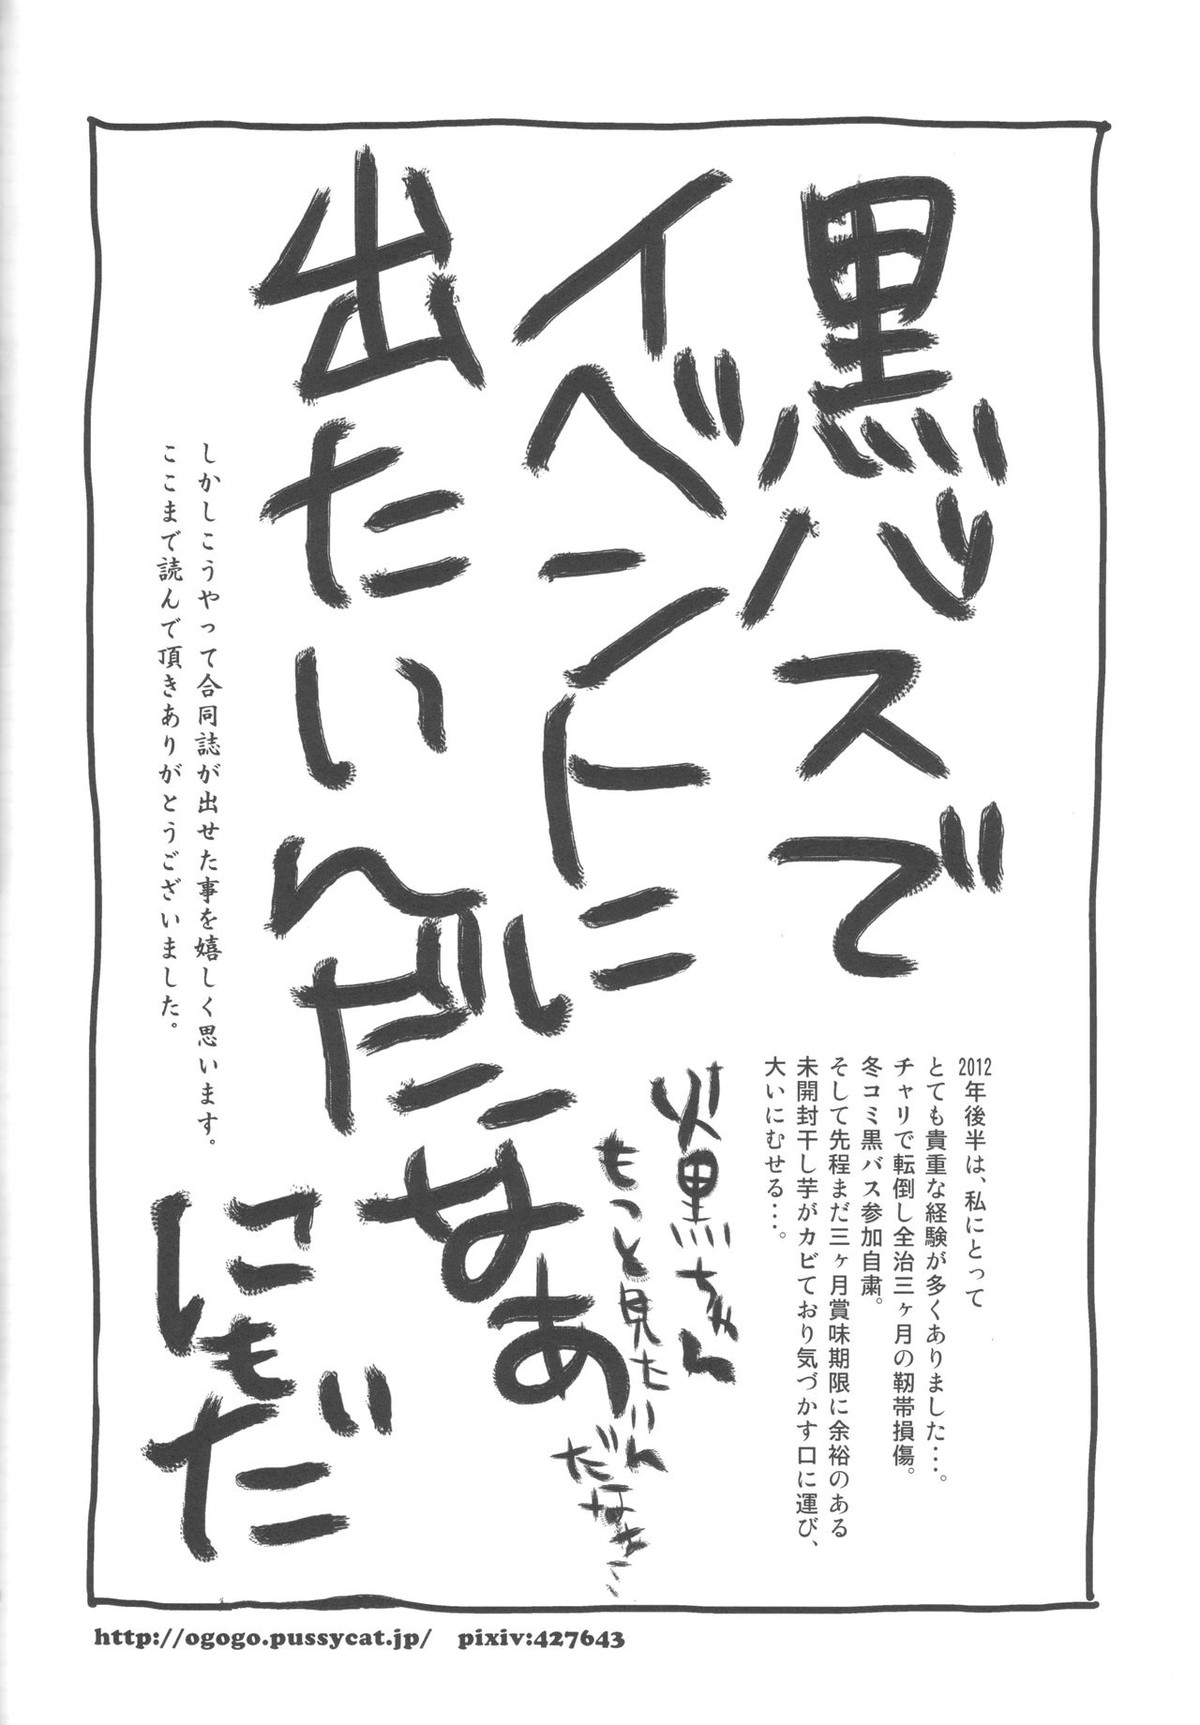 黒バスで
イベントに
出たいんだなあ
にもいだ
火黒ちゃん
もっと見たいん
だなあ…
2012年後半は、私にとって
とても貴重な経験が多くありました…。
チャリで転倒し全治三ヶ月の靭帯損傷。
冬コミ黒バス参加自粛。
そして先程まだ三ヶ月賞味期限に余裕のある
未開封干し芋がカビており気づかす口に運び、
大いにむせる…。
しかしこうやって合同誌が出せた事を嬉しく思います。
ここまで読んで頂きありがとうございました。
http://ogogo.pussycat.jp/ pixiv:427643